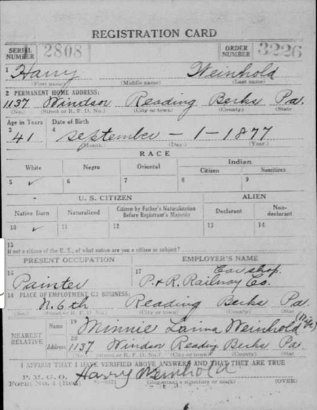 REGISTRATION CARD
SERIAL NUMBER 2808 ORDER NUMBER 3226
1 Harry Weinhold
(First name) (Middle name)
2 PERMANENT HOME ADDRESS:
1137 Windsor Reading Berks Pa.
(No.) (Street or R. F. D. No.) (City or town) (County) (State)
Age in Years Date of Birth
3 41 4 September - 1 - 1877
(Month.) (Day.) (Year.)
RACE
White Negro Oriental Indian
Citizen Noncitizen
5 ✓ 6 7 8 9
U. S. CITIZEN ALIEN
Native Born Naturalized Citizen by Father's Naturalization Before Registrant's Majority Declarant Non-declarant
10 ✓ 11 12 13 14
15
If not a citizen of the U. S., of what nation are you a citizen or subject?
PRESENT OCCUPATION EMPLOYER'S NAME
16 Painter 17 Car shop.
P. & R. Railway Co.
18 PLACE OF EMPLOYMENT OR BUSINESS:
N. 6th Reading Berks Pa
(No.) (Street or R. F. D. No.) (City or town) (County) (State)
NEAREST RELATIVE
Name 19 Minnie Weinhold
Address 20 1137 Windsor Reading Berks Pa.
(No.) (Street or R. F. D. No.) (City or town) (County) (State)
I AFFIRM THAT I HAVE VERIFIED ABOVE ANSWERS AND THAT THEY ARE TRUE
P. M. G. O.
Form No. 1 (Red) Harry Weinhold
(Registrant's signature or mark) (OVER)